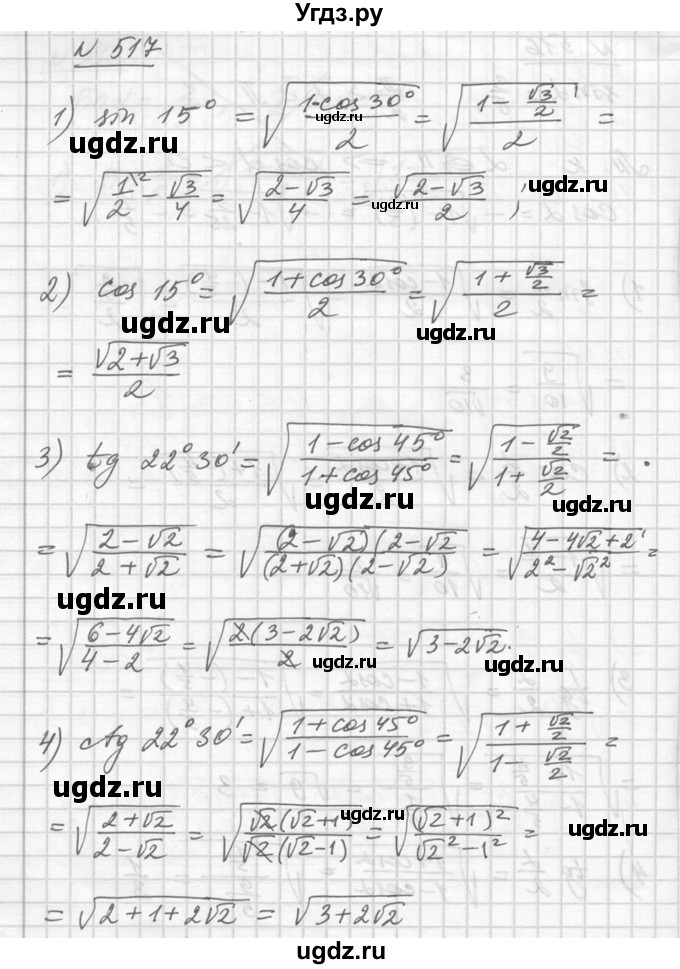 Угдз.ру
N 517
1) sin 15° = √((1-cos30°)/2) = √((1 - √3/2)/2) =
ugdz.ru
= √(1\²/2 - √3/4) = √((2-√3)/4) = √(2-√3)/2 ;
ugdz.ru
ugdz.ru
2) cos 15° = √((1+cos30°)/2) = √((1 + √3/2)/2) =
ugdz.ru
ugdz.ru
= √(2+√3)/2
3) tg 22°30' = √((1-cos45°)/(1+cos45°)) = √((1 - √2/2)/(1 + √2/2)) =
ugdz.ru
ugdz.ru
= √((2-√2)/(2+√2)) = √((2-√2)(2-√2)/(2+√2)(2-√2)) = √((4-4√2+2)/(2²-√2²)) =
ugdz.ru
= √((6-4√2)/(4-2)) = √(2(3-2√2)/2) = √(3-2√2).
ugdz.ru
ugdz.ru
4) ctg 22°30' = √((1+cos45°)/(1-cos45°)) = √((1 + √2/2)/(1 - √2/2)) =
ugdz.ru
= √((2+√2)/(2-√2)) = √(√2(√2+1)/√2(√2-1)) = √((√2+1)²/(√2²-1²)) =
ugdz.ru
ugdz.ru
= √(2+1+2√2) = √(3+2√2)
ugdz.ru